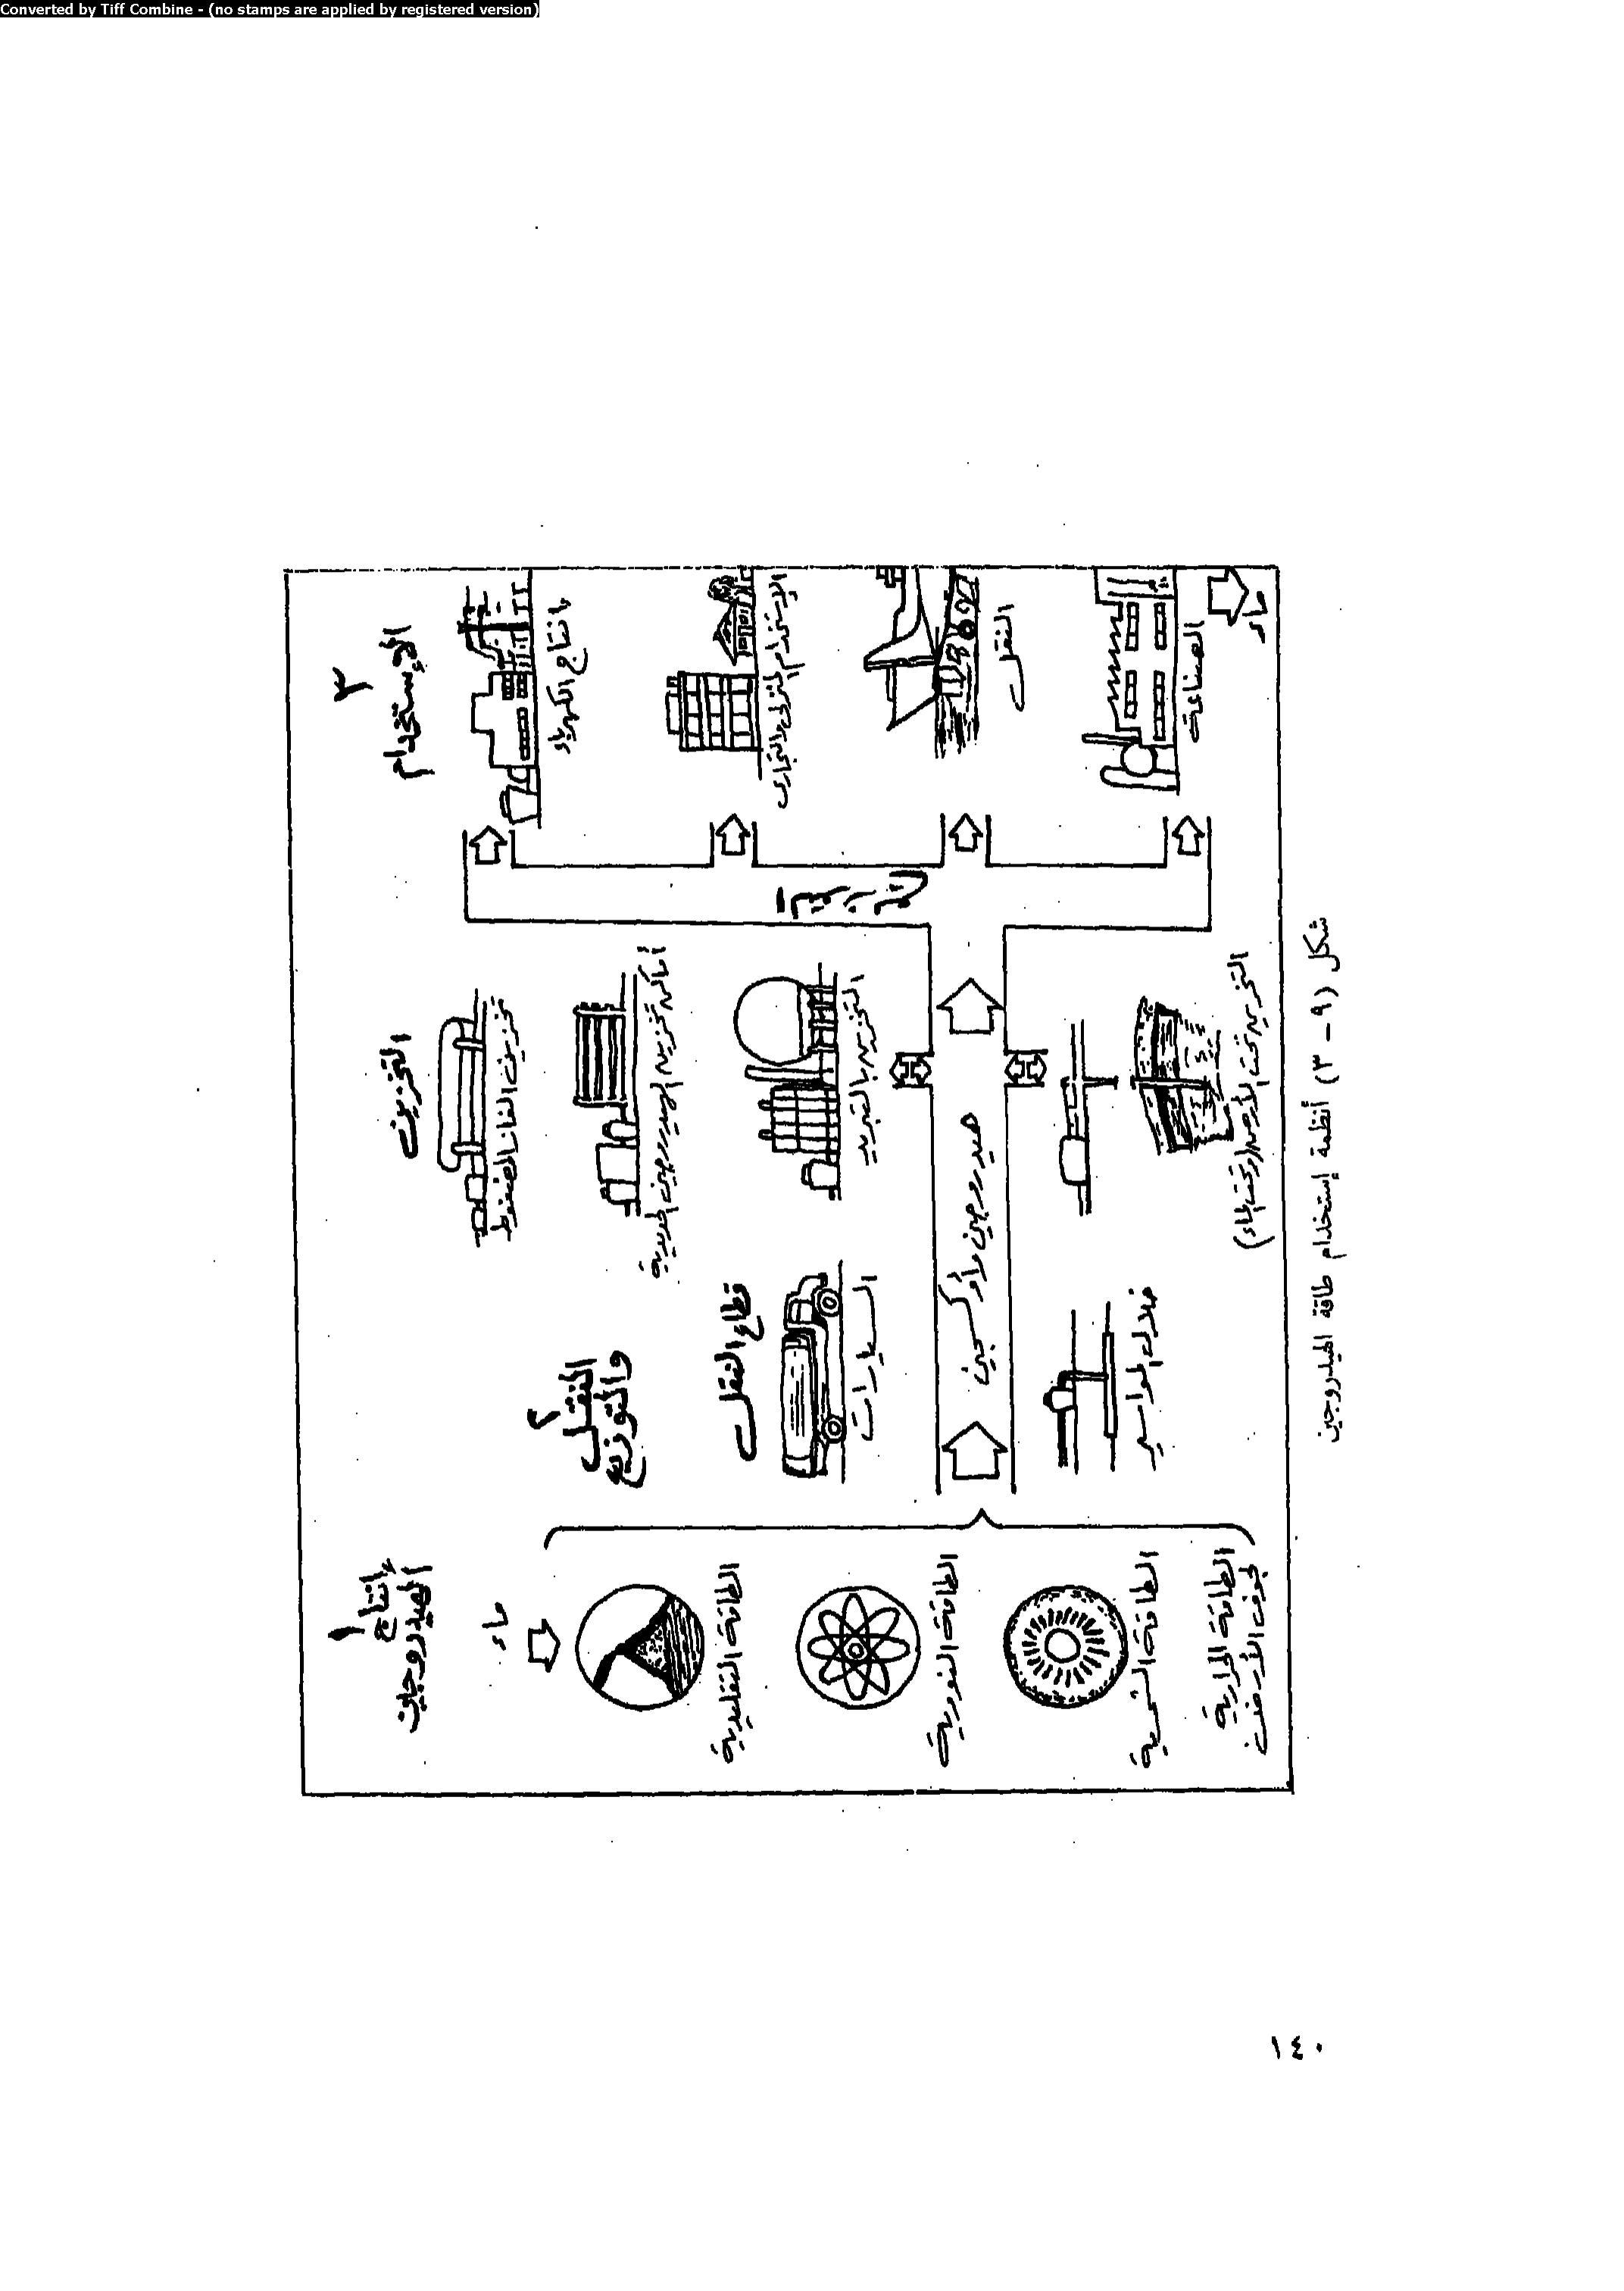 Converted by Tiff Combine - (no stamps are applied by registered version)
١
إنتاج
الهيدروجين
ماء
الطاقة التقليدية
الطاقة النووية
الطاقة الشمسية
الطاقة الحرارية
لجوف الأرض
٢
النقل
والتوزيع
قطاع النقل
السيارات
هيدروجين وأوكسجين
خلال المواسير
التخزين
تخزين الغاز المضغوط
أماكن تخزين الهيدروجين الحديدية
التخزين بالتبريد
التخزين تحت الأرض (تحت الماء)
٣
الإستخدام
إنتاج الكهرباء
الإستخدام المنزلى والتجارى
النقل
الصناعة
ماء
شكل (٩ - ٣) أنظمة إستخدام طاقة الهيدروجين
١٤٠